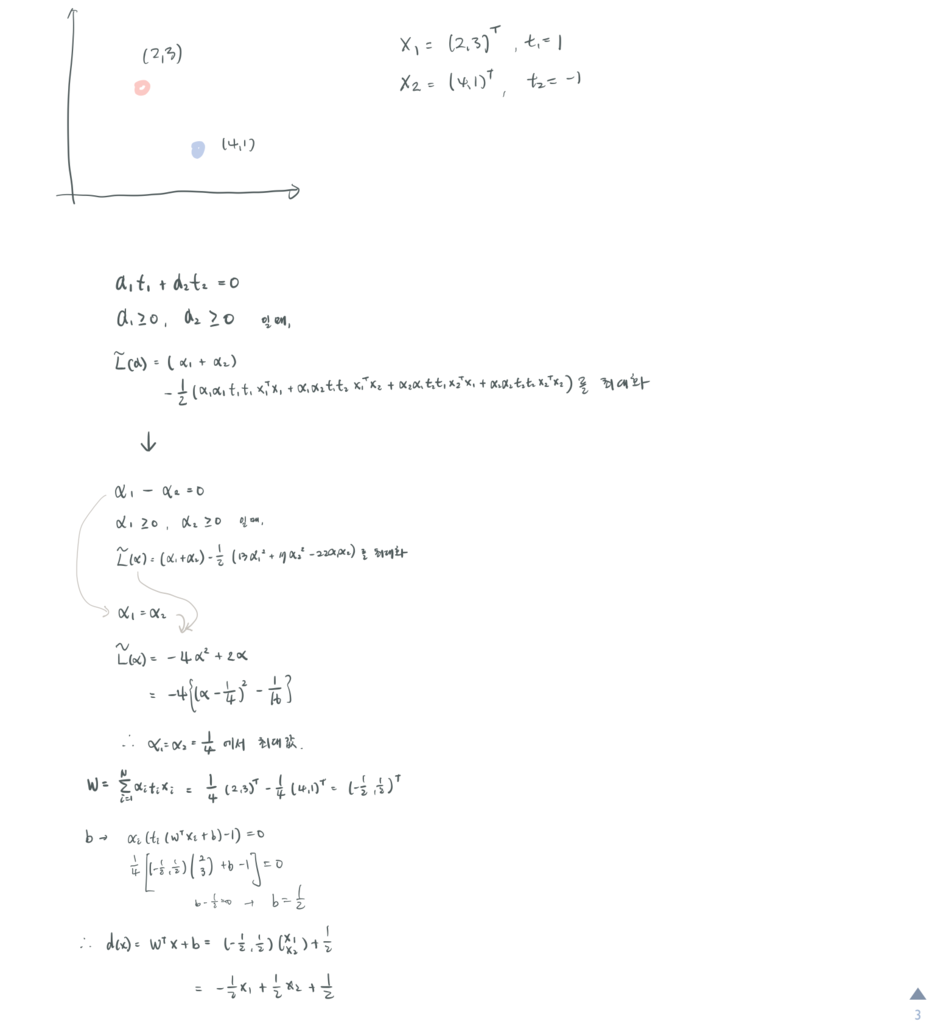 (2,3)
(4,1)
X₁ = (2,3)ᵀ, t₁ = 1
X₂ = (4,1)ᵀ, t₂ = -1
α₁t₁ + α₂t₂ = 0
α₁ ≥ 0, α₂ ≥ 0 일때,
L̃(α) = (α₁ + α₂)
- 1/2 (α₁α₁t₁t₁x₁ᵀx₁ + α₁α₂t₁t₂x₁ᵀx₂ + α₂α₁t₂t₁x₂ᵀx₁ + α₂α₂t₂t₂x₂ᵀx₂) 를 최대화
↓
α₁ - α₂ = 0
α₁ ≥ 0, α₂ ≥ 0 일때,
L̃(α) = (α₁+α₂) - 1/2 (13α₁² + 17α₂² - 22α₁α₂) 를 최대화
α₁ = α₂
L̃(α) = -4α² + 2α
= -4{(α - 1/4)² - 1/16}
∴ α₁ = α₂ = 1/4 에서 최대값.
W = Σᵢ₌₁ᴺ αᵢtᵢxᵢ = 1/4 (2,3)ᵀ - 1/4 (4,1)ᵀ = (-1/2, 1/2)ᵀ
b → αᵢ(tᵢ(wᵀxᵢ + b) - 1) = 0
1/4 [(-1/2, 1/2)(2 3) + b - 1] = 0
b - 1/2 = 0 → b = 1/2
∴ d(x) = wᵀx + b = (-1/2, 1/2)(x₁ x₂) + 1/2
= -1/2 x₁ + 1/2 x₂ + 1/2
3